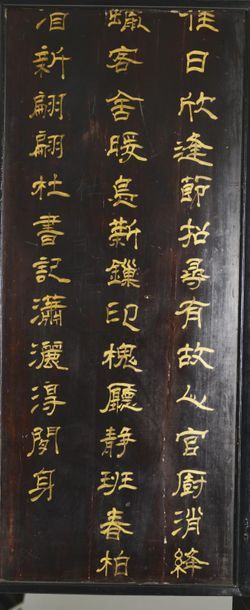 佳日欣逢節招尋有故心官廚消絳
蠟客舍暖烏薪鏁印槐廳靜班春柏
酒新翩翩杜書記瀟灑淂閒身